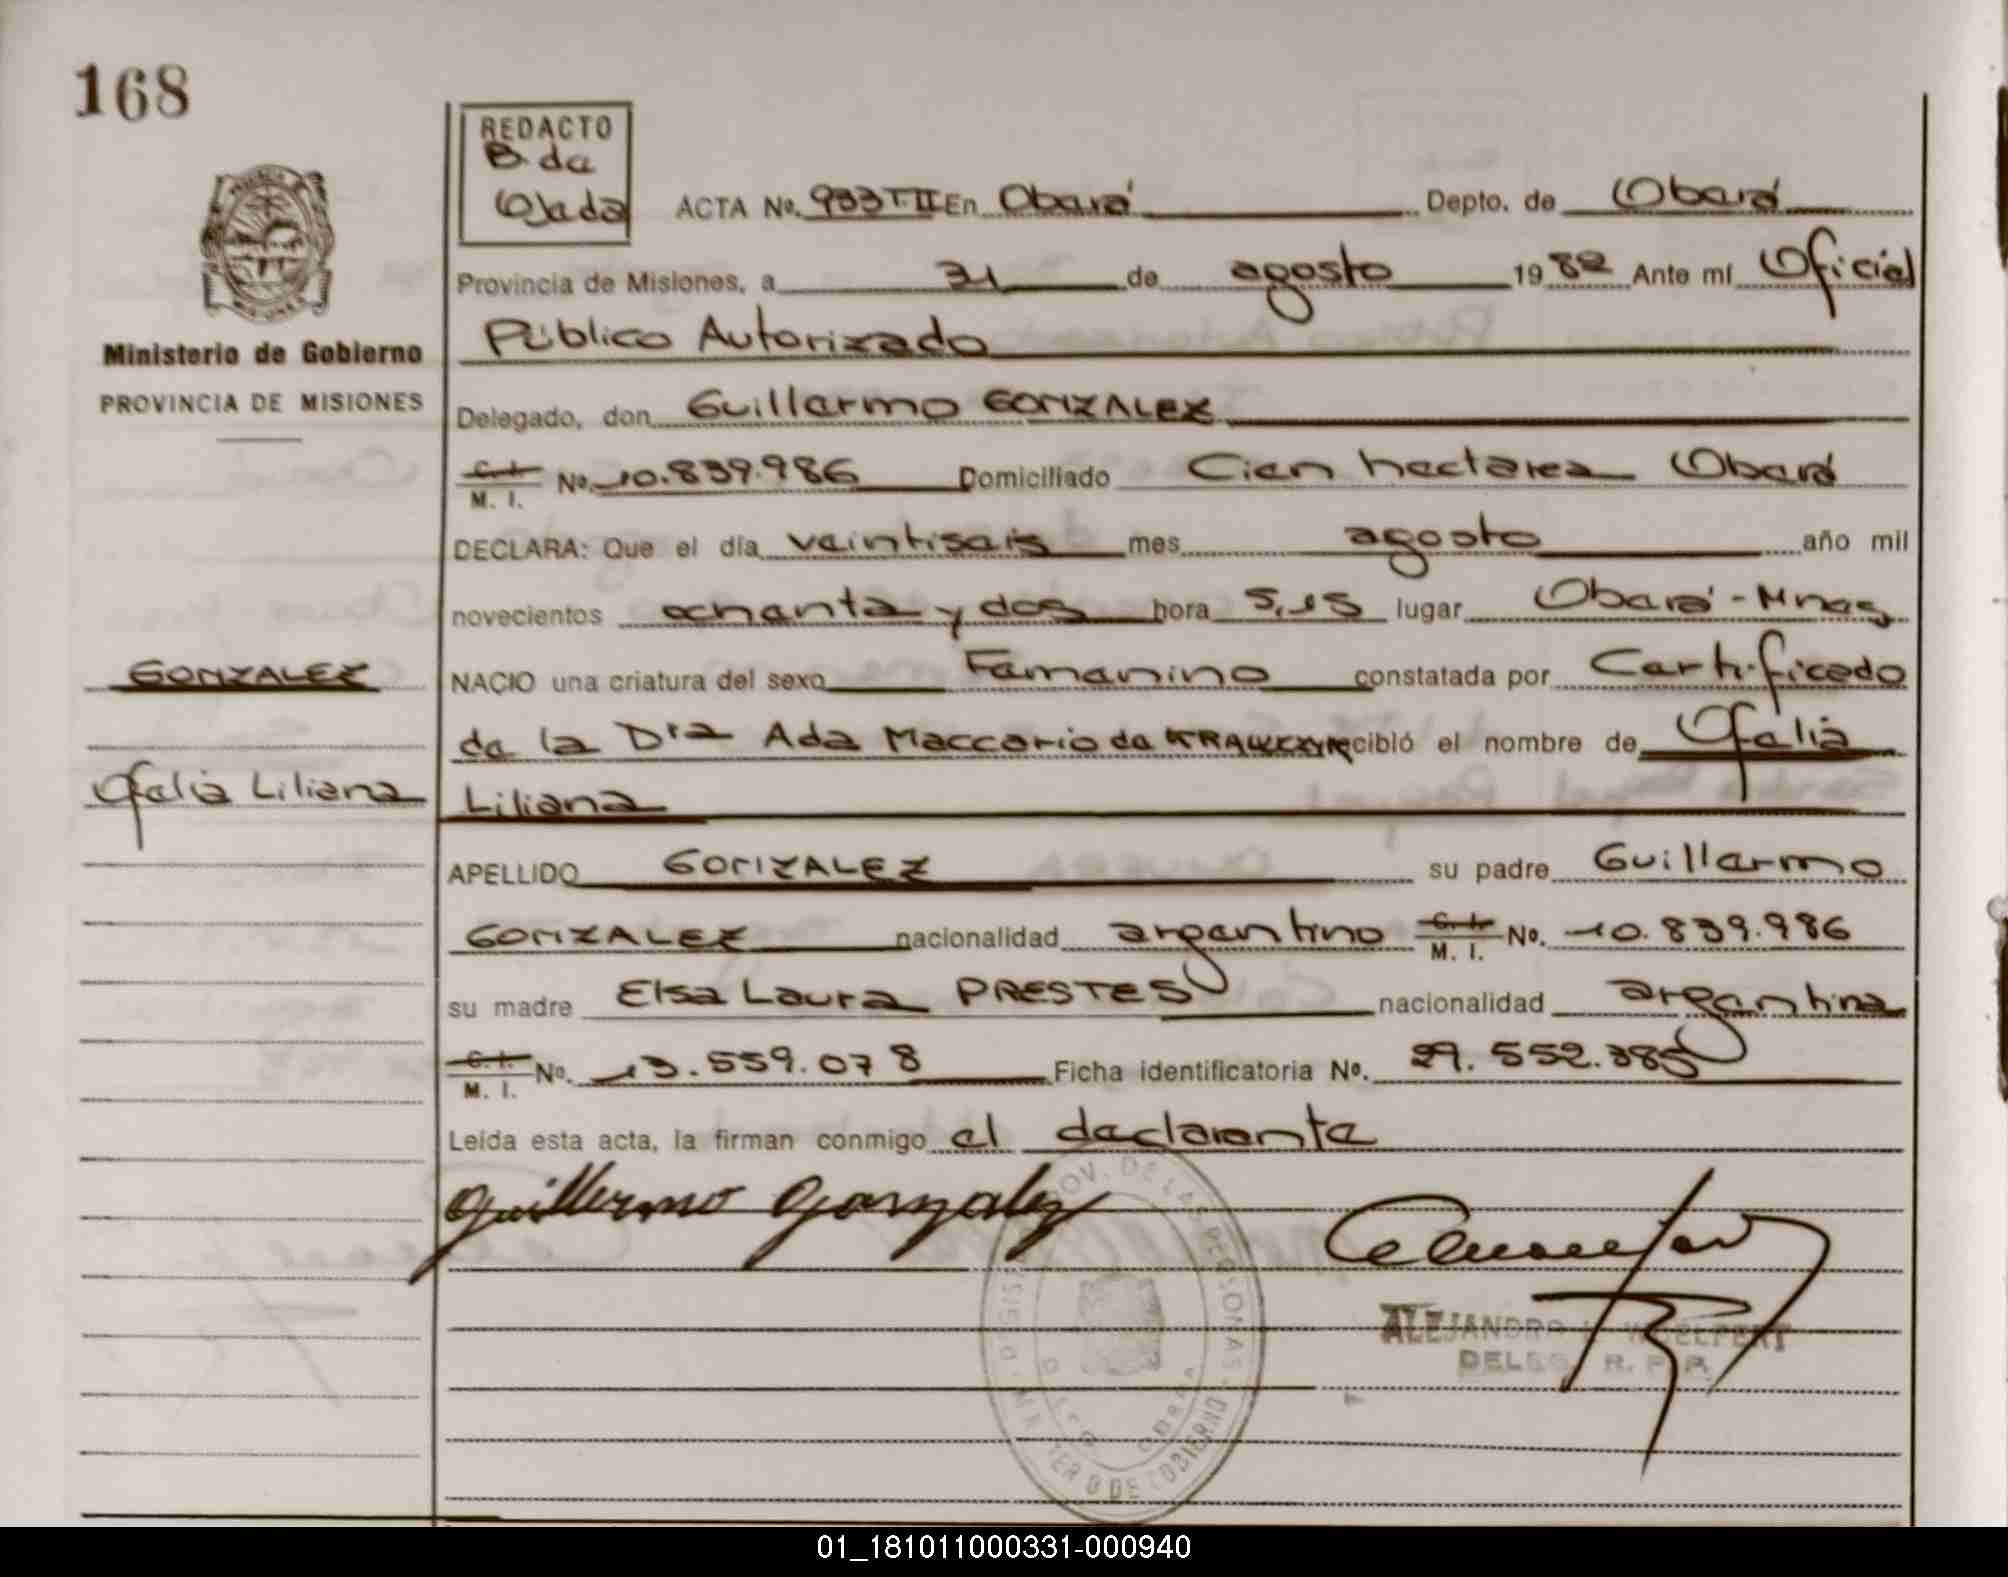 168
REDACTO
B. de
Ojeda
ACTA No. 933 T II En Oberá Depto. de Oberá
Provincia de Misiones, a 31 de agosto 1982 Ante mí Oficial
Público Autorizado
Ministerio de Gobierno
PROVINCIA DE MISIONES
Delegado, don Guillermo GONZALEZ
C. I. M. I. No. 10.839.986 Domiciliado Cien hectarea Oberá
DECLARA: Que el día veintiseis mes agosto año mil
novecientos ochenta y dos hora 5,15 lugar Oberá - Mnes
GONZALEZ
NACIO una criatura del sexo Femenino constatada por Certificado
de la Dra Ada Maccario de KRAWCZYK recibló el nombre de Ofelia
Ofelia Liliana
Liliana
APELLIDO GONZALEZ su padre Guillermo
GONZALEZ nacionalidad argentino C. I. M. I. No. 10.839.986
su madre Elsa Laura PRESTES nacionalidad argentina
C. I. M. I. No. 13.559.078 Ficha identificatoria No. 29.552.385
Leída esta acta, la firman conmigo el declarante
Guillermo Gonzalez
ALEJANDRO
DELEG. R. P. P.
01_181011000331-000940